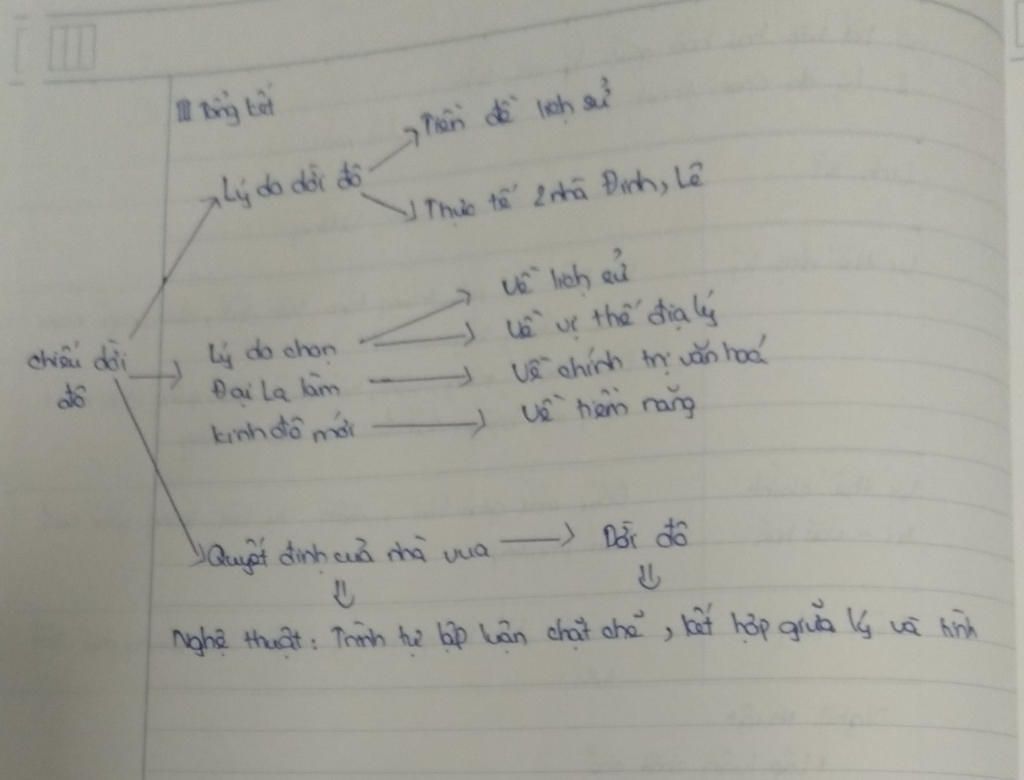 III Tổng kết
Tiền đề lịch sử
Lý do dời đô
Thực tế 2 nhà Đinh, Lê
Về lịch sử
Về vị thế địa lý
chiếu dời
đô
Lý do chọn
Đại La làm
kinh đô mới
Về chính trị văn hoá
Về tiềm năng
Quyết định của nhà vua
Dời đô
Nghệ thuật: Trình tự lập luận chặt chẽ, kết hợp giữa lý và tình